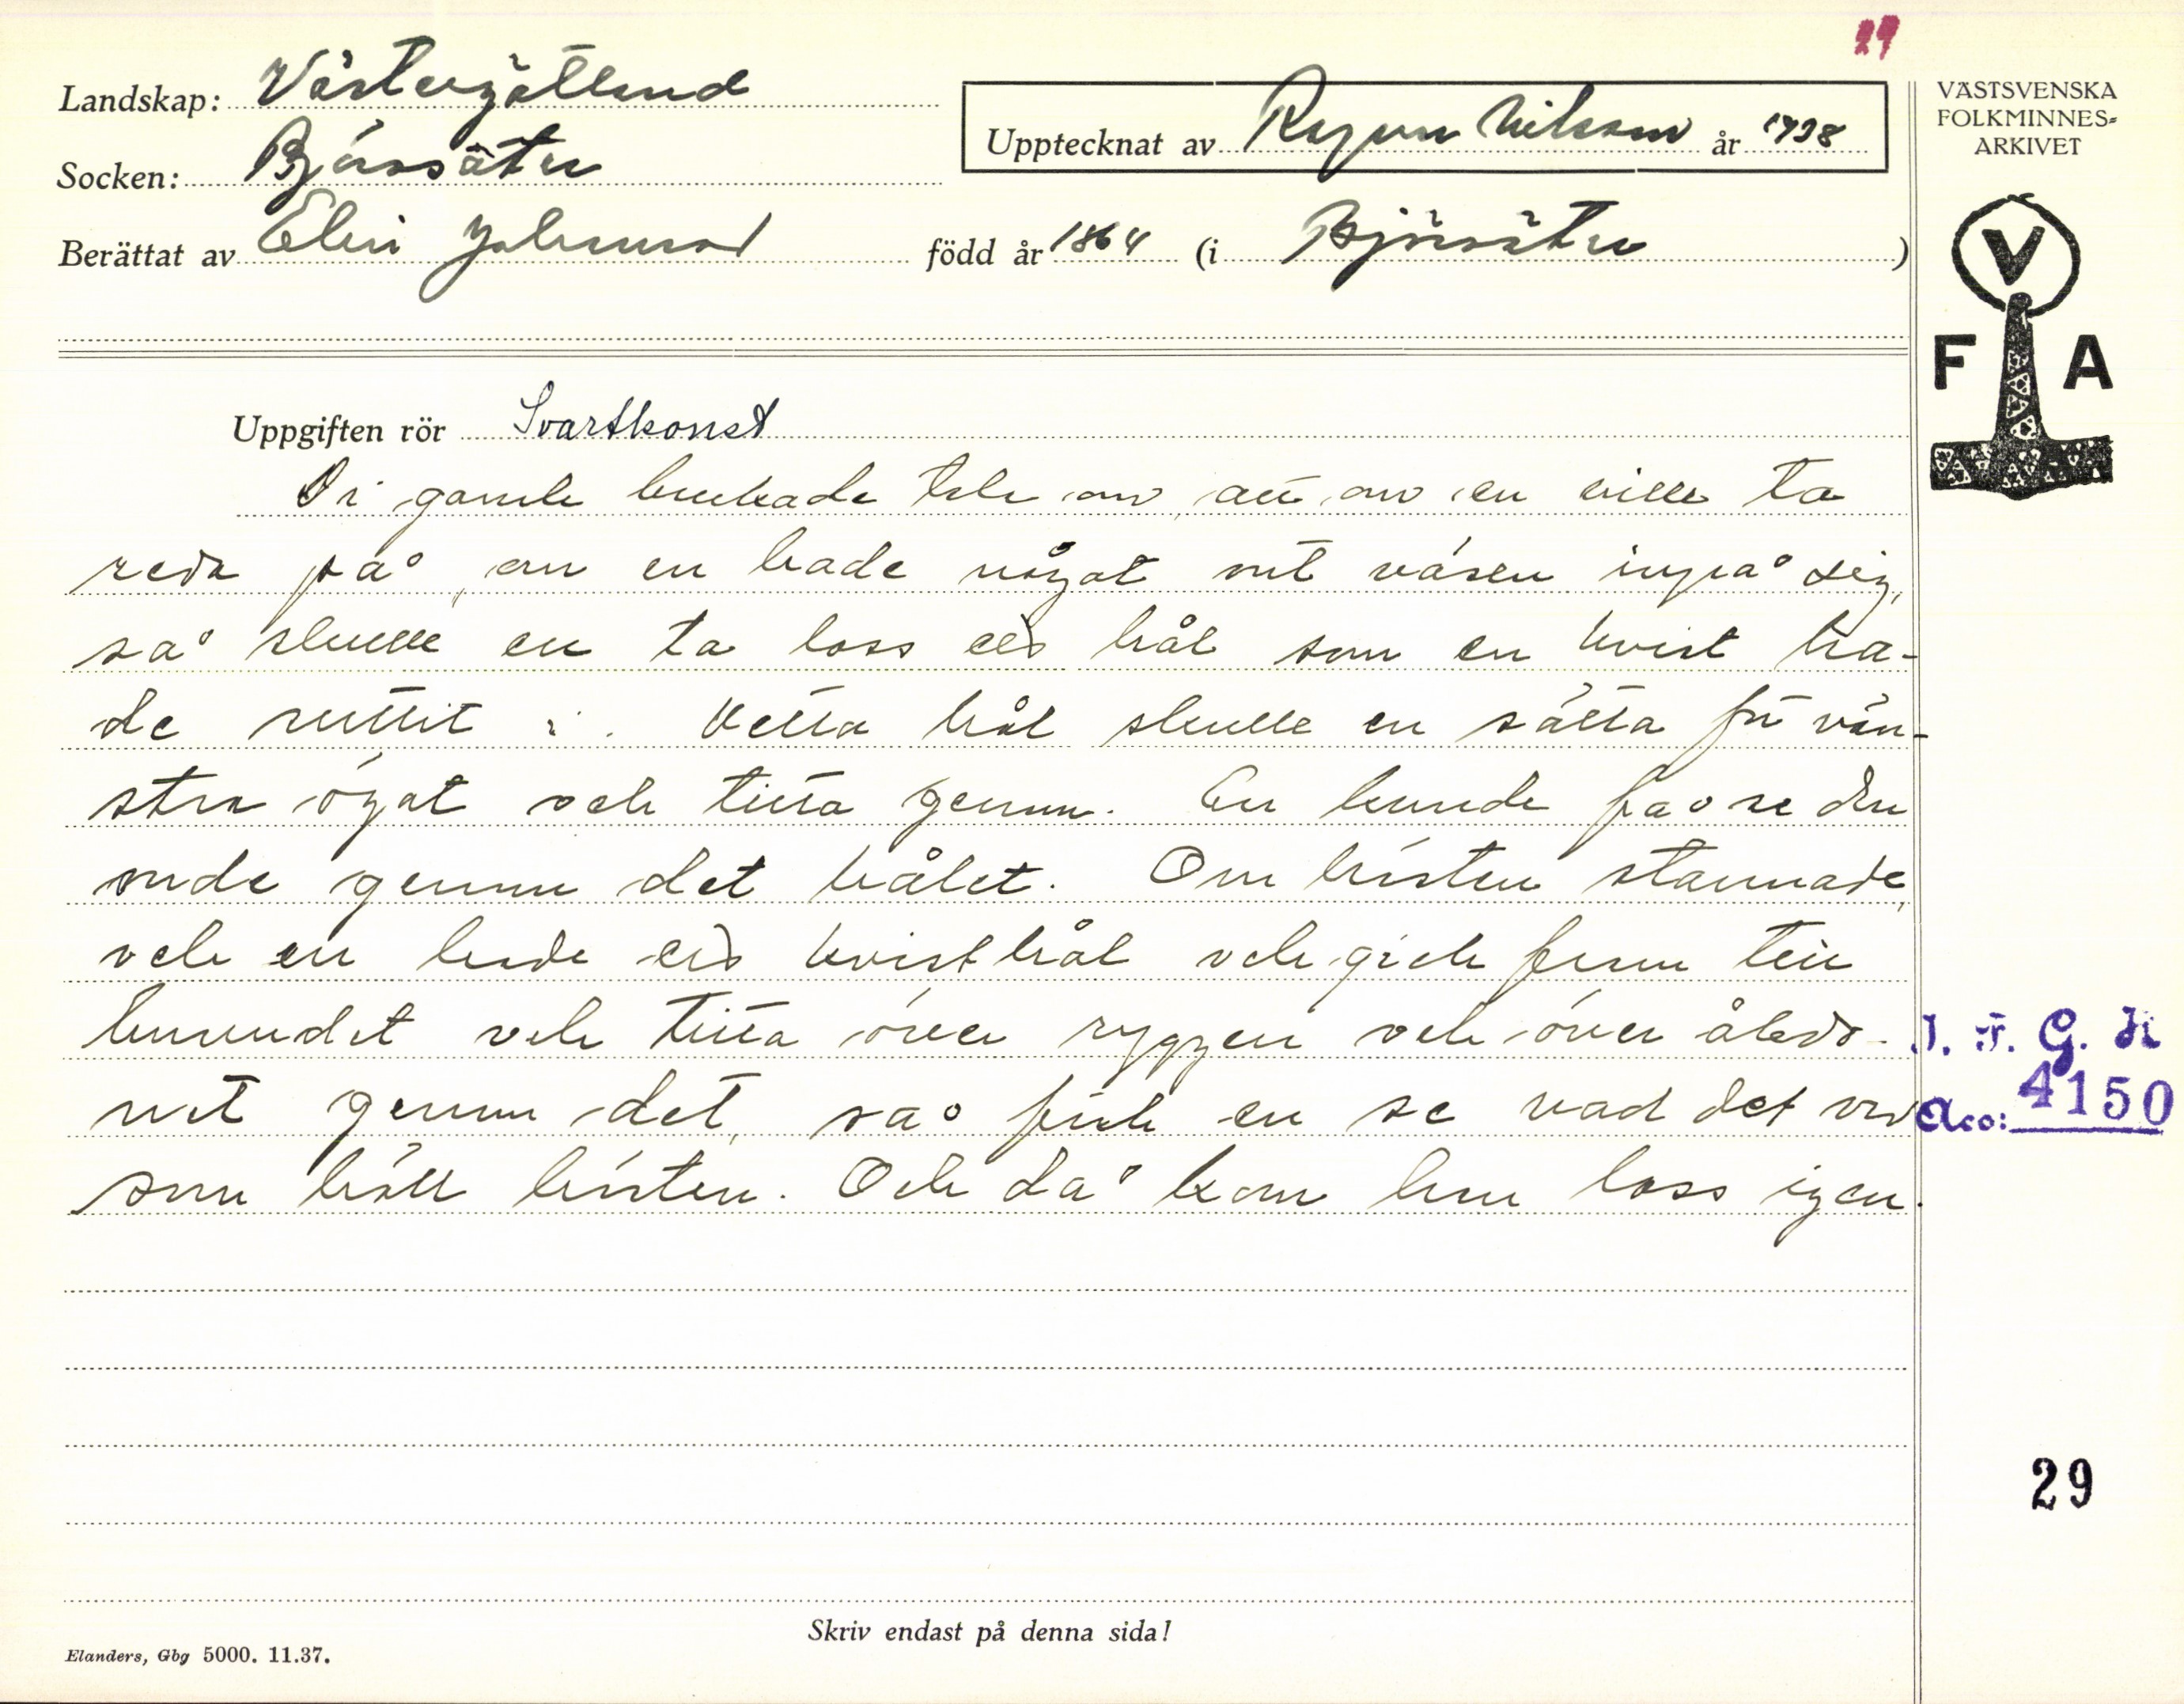 29
Landskap: Västergötland
Socken: Björsäter
Berättat av Elin Johansson
Upptecknat av Ragnar Nilsson år 1938
född år 1864 (i Björsäter)
VÄSTSVENSKA
FOLKMINNES-
ARKIVET
V
F A
Uppgiften rör Svartkonst
Di gamle brukade tale om, att om en ville ta
reda på, om en hade något ont väsen inpå sig,
så skulle en ta loss ett hål som en kvist ha-
de suttit i. Detta hål skulle en sätta för vän-
stra ögat och titta genom. En kunde få se den
onde genom det hålet. Om hästen stannade,
och en hade ett kvisthål och gick fram till
huvudet och titta över ryggen och över åkdo-
net genom det, så fick en se vad det var
som höll hästen. Och då kom han loss igen.
I. F. G. H
Acc: 4150
29
Skriv endast på denna sida!
Elanders, Gbg 5000. 11.37.